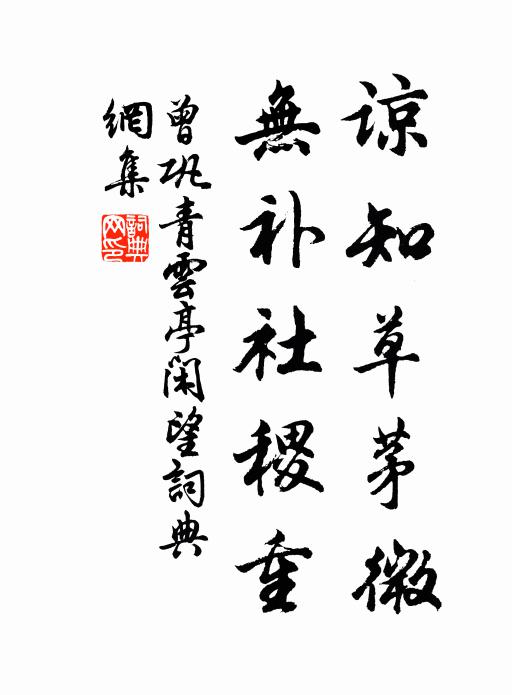 谅知草茅微
無补社稷重
曾巩青雲亭闲望詞典
網集
詞典网印